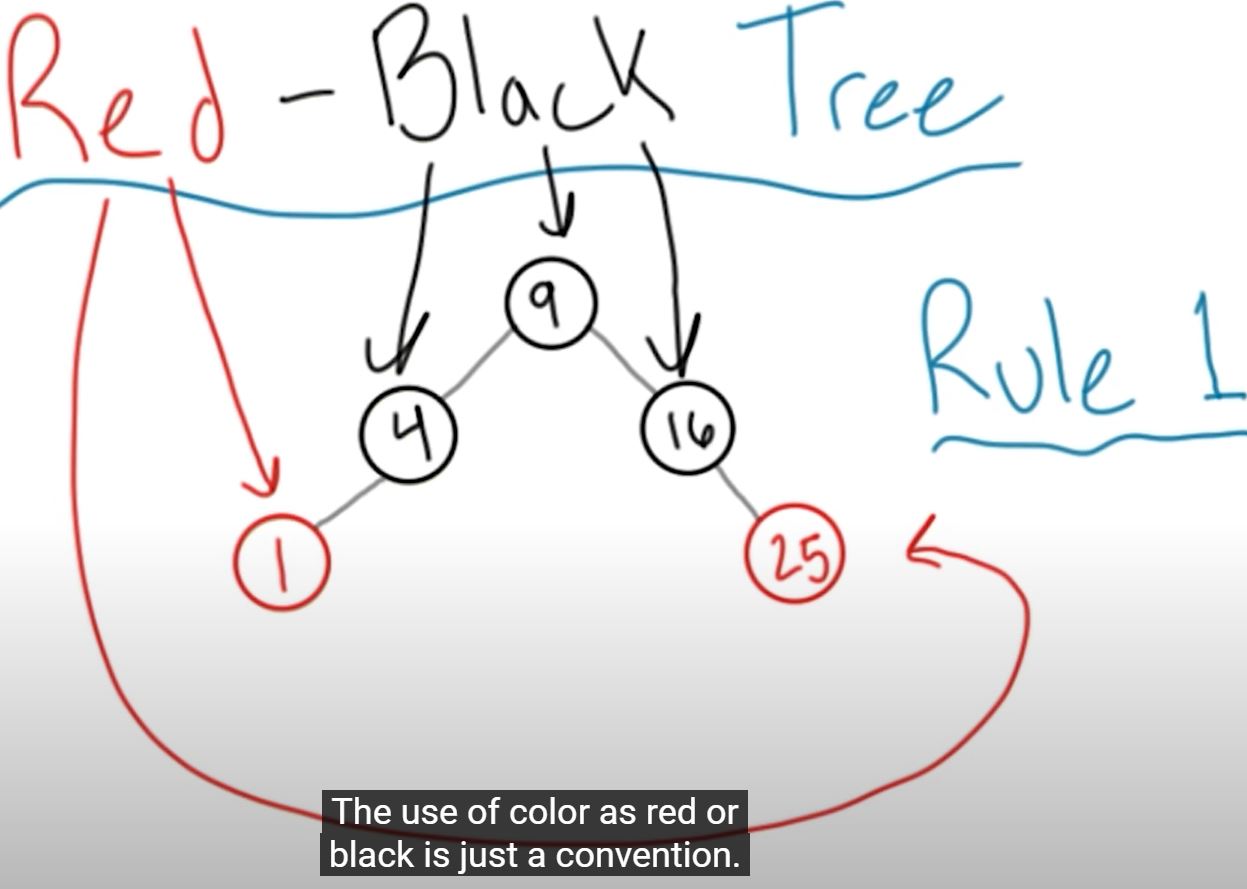 Red - Black Tree
9
Rule 1
4
16
1
25
The use of color as red or
black is just a convention.